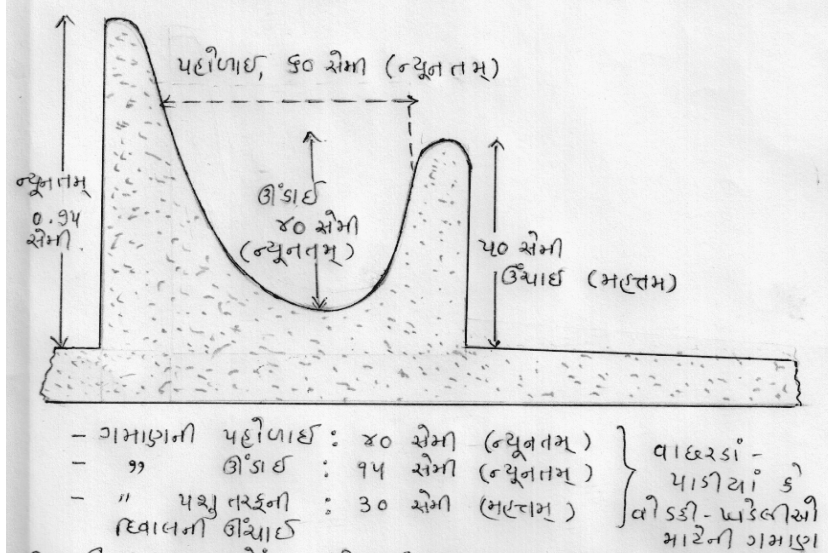 પહોળાઈ, ૬૦ સેમી (ન્યૂનતમ્)
ન્યૂનતમ્
૦.૭૫
સેમી
ઊંડાઈ
૪૦ સેમી
(ન્યૂનતમ્)
૫૦ સેમી
ઊંચાઈ (મહત્તમ)
- ગમાણની પહોળાઈ : ૪૦ સેમી (ન્યૂનતમ્)
- ,, ઊંડાઈ : ૧૫ સેમી (ન્યૂનતમ્)
- ,, પશુ તરફની : ૩૦ સેમી (મહત્તમ્)
દિવાલની ઊંચાઈ
વાછરડાં -
પાડીયાં કે
વોડકી - ખડેલીઓ
માટેની ગમાણ